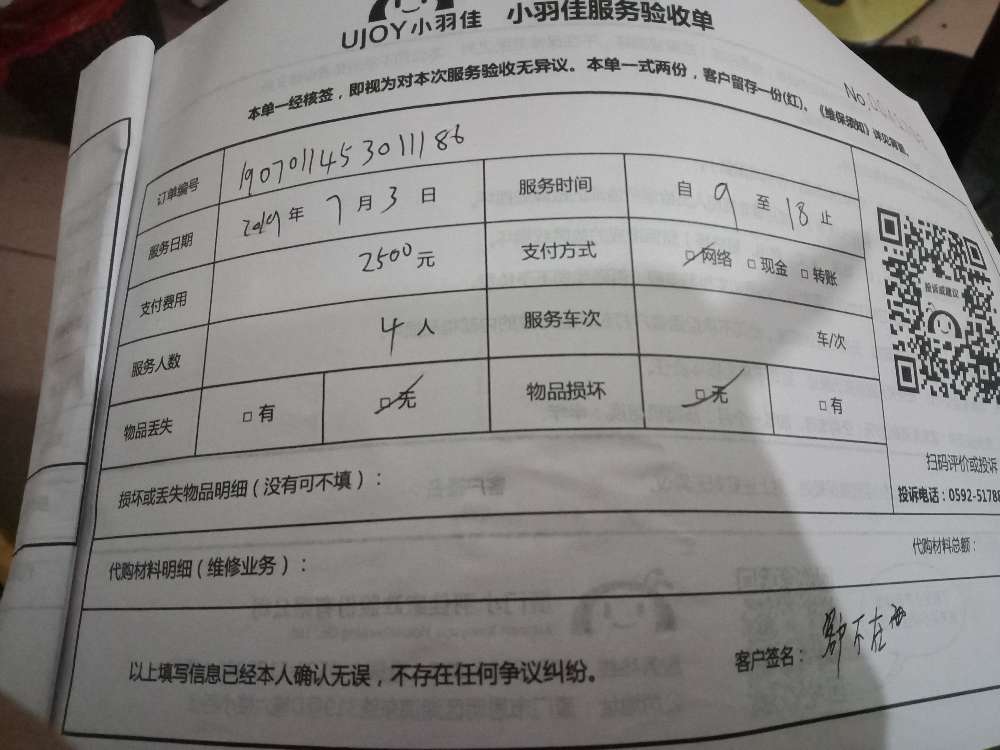 UJOY小羽佳 小羽佳服务验收单
本单一经核签，即视为对本次服务验收无异议。本单一式两份，客户留存一份(红)。《维保须知》详见背面。
No.
订单编号 1907011453011186
服务日期 2019 年 7 月 3 日 服务时间 自 9 至 18 止
支付费用 2500元 支付方式 □网络 □现金 □转账
服务人数 4 人 服务车次 车/次
物品丢失 □有 □无 物品损坏 □无 □有
投诉或建议
扫码评价或投诉
投诉电话：0592-5178
损坏或丢失物品明细（没有可不填）：
代购材料明细（维修业务）：
代购材料总额：
以上填写信息已经本人确认无误，不存在任何争议纠纷。
客户签名： 客户不在